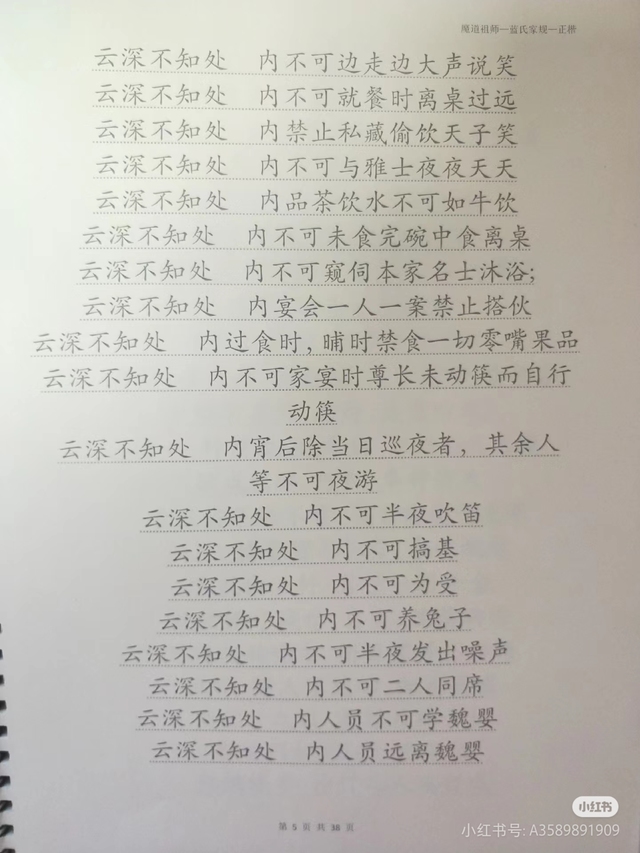 魔道祖师—蓝氏家规—正楷
云深不知处　内不可边走边大声说笑
云深不知处　内不可就餐时离桌过远
云深不知处　内禁止私藏偷饮天子笑
云深不知处　内不可与雅士夜夜天天
云深不知处　内品茶饮水不可如牛饮
云深不知处　内不可未食完碗中食离桌
云深不知处　内不可窥伺本家名士沐浴;
云深不知处　内宴会一人一案禁止搭伙
云深不知处　内过食时, 晡时禁食一切零嘴果品
云深不知处　内不可家宴时尊长未动筷而自行
动筷
云深不知处　内宵后除当日巡夜者，其余人
等不可夜游
云深不知处　内不可半夜吹笛
云深不知处　内不可搞基
云深不知处　内不可为受
云深不知处　内不可养兔子
云深不知处　内不可半夜发出噪声
云深不知处　内不可二人同席
云深不知处　内人员不可学魏婴
云深不知处　内人员远离魏婴
第 5 页 共 38 页
小红书
小红书号: A3589891909